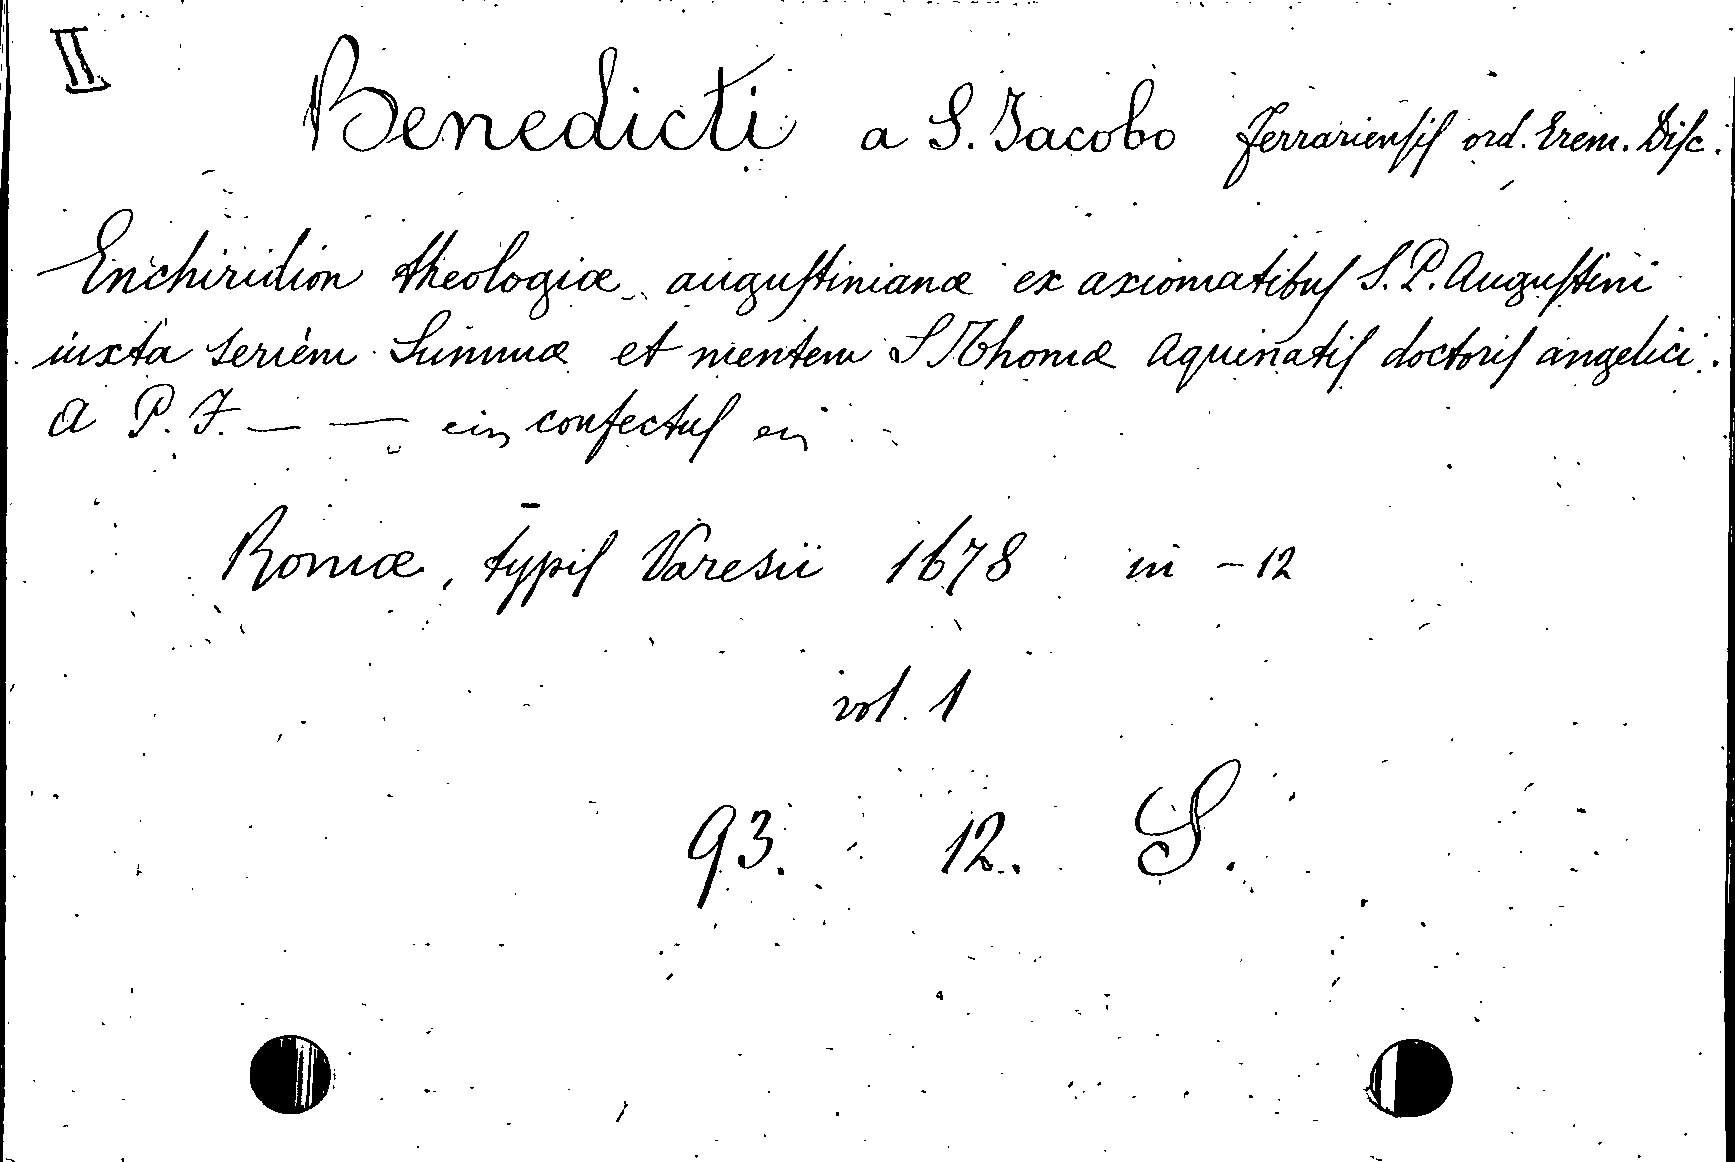 II
Benedicti a S. Jacobo ferrariensis ord. Erem. Disc.
Enchiridion theologiæ augustinianæ ex axiomatibus S. P. Augustini
iuxta seriem Summæ et mentem S Thomæ Aquinatis doctoris angelici.
A P. F. — — confectus
Romæ, typis Varesii 1678 in - 12
vol. 1
93. 12. S.